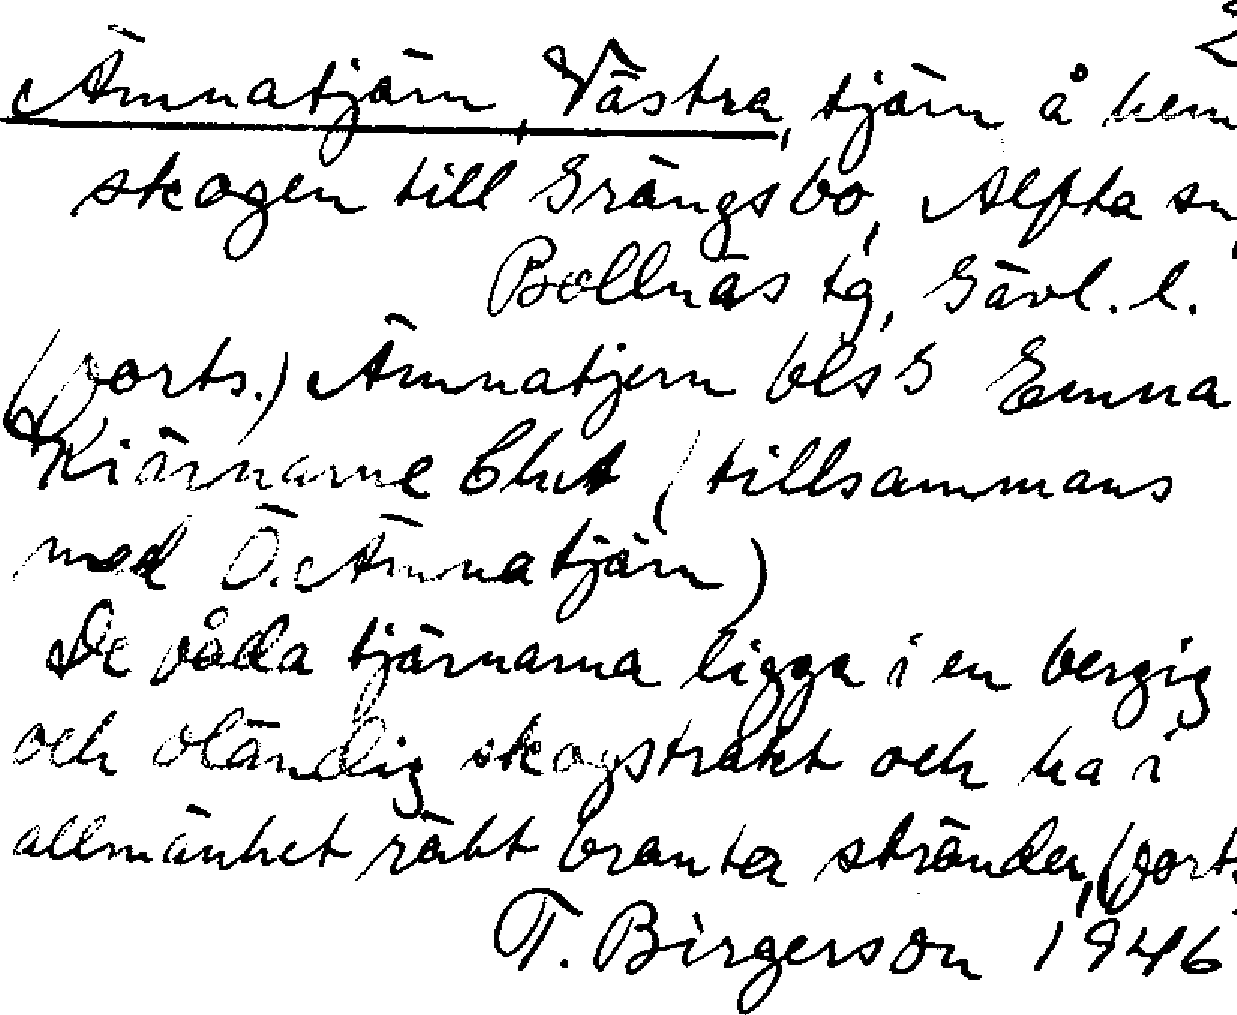 2
Ämnatjärn, Västra, tjärn å hem
skogen till Grängsbo, Alfta sn,
Bollnäs tg, Gävl. l.
(forts.) Ämnatjern bl5 5 Emna
Kiärnarne
(tillsammans
med Ö. Ämnatjärn)
De båda tjärnarna ligga i en bergig
och oländig skogstrakt och ha i
allmänhet rätt branta stränder, (forts.
T. Birgerson 1946